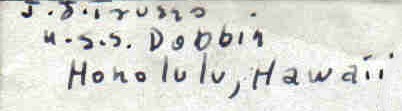 J. J. Trusso.
U.S.S. Dobbin
Honolulu, Hawaii